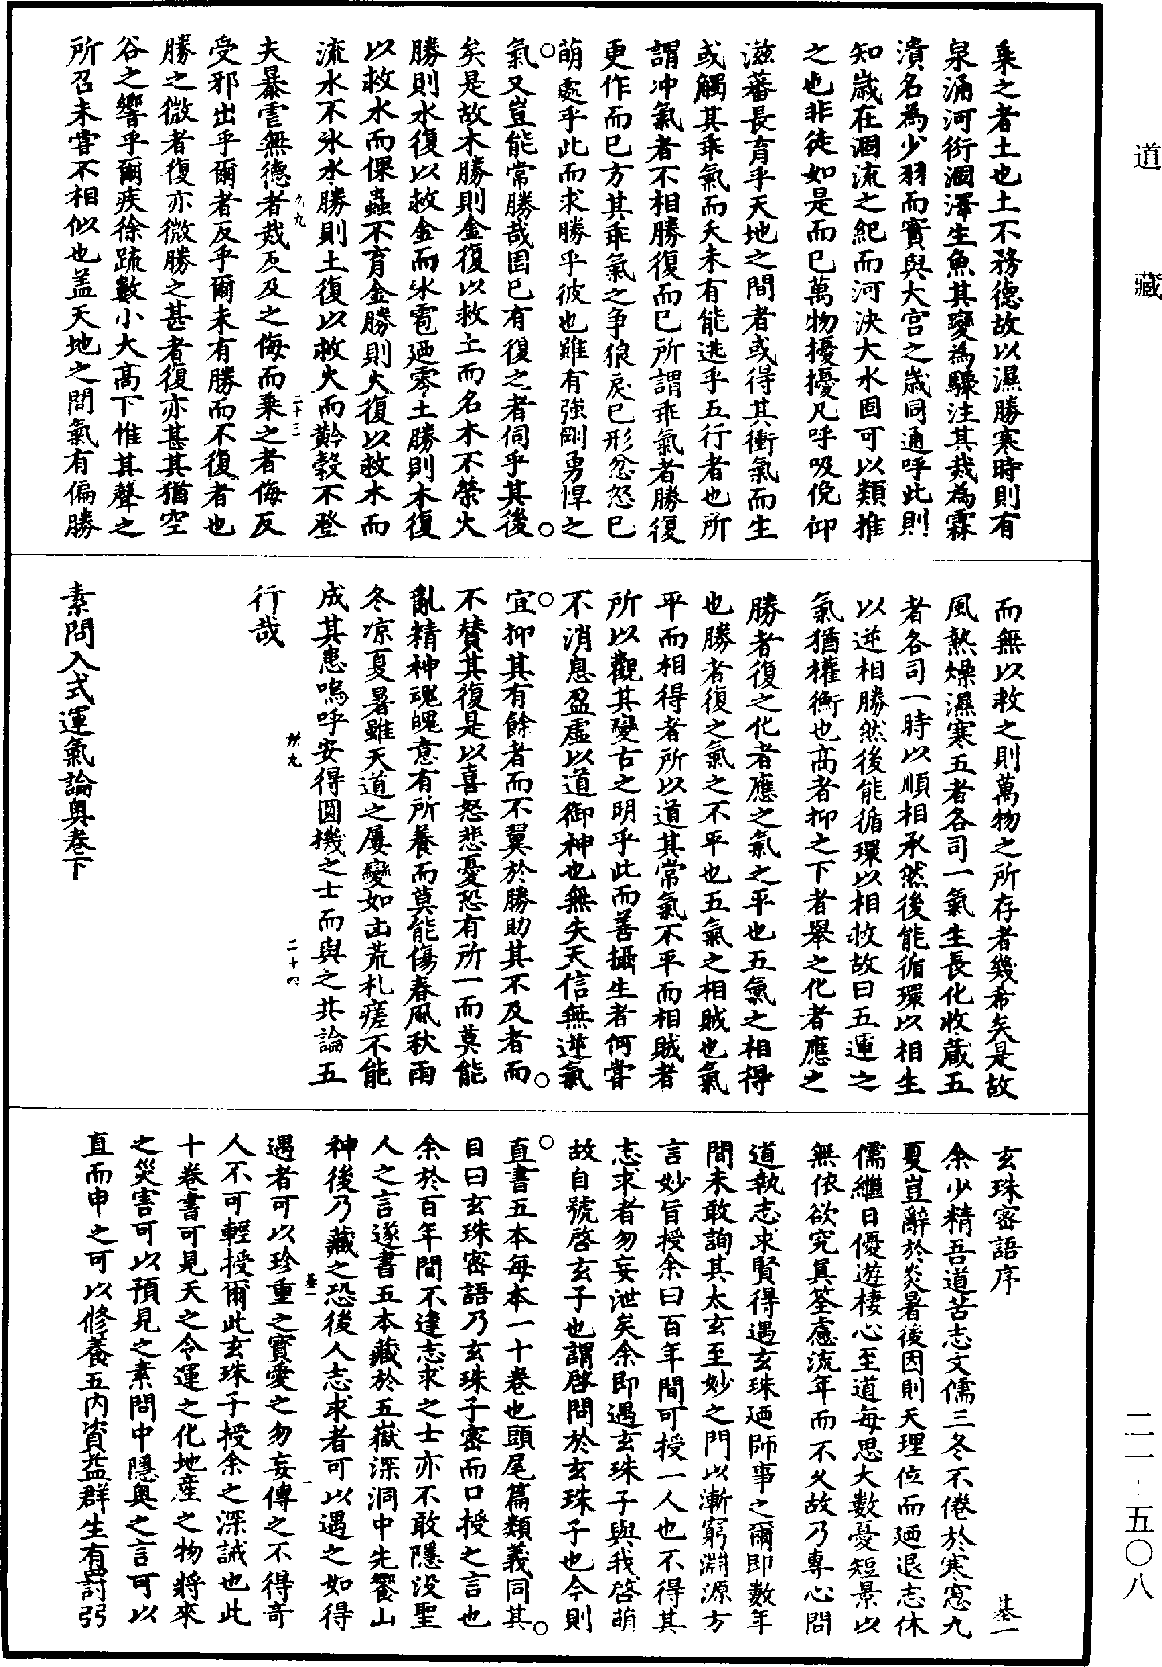 道藏
乘之者土也土不務德故以濕勝寒時則有
泉涌河衍涸澤生魚其變為驟注其烖為霖
潰名為少羽而實與大宮之歲同通呼此則
知歲在涸流之紀而河決大水固可以類推
之也非徒如是而已萬物擾擾凡呼吸俛仰
滋蕃長育乎天地之間者或得其衝氣而生
或觸其乖氣而夭未有能逃乎五行者也所
謂冲氣者不相勝復而已所謂乖氣者勝復
更作而已方其乖氣之争狼戾已形忿怒已
萌處乎此而求勝乎彼也雖有強剛勇悍之
氣又豈能常勝哉固已有復之者伺乎其後
矣是故木勝則金復以救土而名木不榮火
勝則水復以救金而氷雹廼零土勝則木復
以救水而倮蟲不育金勝則火復以救木而
流水不氷水勝則土復以救火而黅穀不登
夫暴虐無德者烖反及之侮而乘之者侮反
受邪出乎爾者反乎爾未有勝而不復者也
勝之微者復亦微勝之甚者復亦甚其猶空
谷之響乎爾疾徐踈數小大高下惟其聲之
所召未嘗不相似也盖天地之間氣有偏勝
而無以救之則萬物之所存者幾希矣是故
風熱燥濕寒五者各司一氣生長化收藏五
者各司一時以順相承然後能循環以相生
以逆相勝然後能循環以相救故曰五運之
氣猶權衡也高者抑之下者舉之化者應之
勝者復之化者應之氣之平也五氣之相得
也勝者復之氣之不平也五氣之相賊也氣
平而相得者所以道其常氣不平而相賊者
所以觀其變古之明乎此而善攝生者何嘗
不消息盈虛以道御神也無失天信無逆氣
宜抑其有餘者而不翼於勝助其不及者而
不贊其復是以喜怒悲憂恐有所一而莫能
亂精神魂魄意有所養而莫能傷春風秋雨
冬凉夏暑雖天道之屢變如出荒札瘥不能
成其患嗚呼安得圓機之士而與之共論五
行哉
素問入式運氣論奥卷下
玄珠密語序
余少精吾道苦志文儒三冬不倦於寒窓九
夏豈辭於炎暑後因則天理位而廼退志休
儒繼日優遊棲心至道每思大數憂短景以
無依欲究真筌慮流年而不久故乃專心問
道執志求賢得遇玄珠廼師事之爾即數年
間未敢詢其太玄至妙之門以漸窮淵源方
言妙旨授余曰百年間可授一人也不得其
志求者勿妄泄矣余即遇玄珠子與我啓萌
故自號啓玄子也謂啓問於玄珠子也今則
直書五本每本一十卷也頭尾篇類義同其
目曰玄珠密語乃玄珠子密而口授之言也
余於百年間不逢志求之士亦不敢隱没聖
人之言遂書五本藏於五嶽深洞中先饗山
神後乃藏之恐後人志求者可以遇之如得
遇者可以珍重之寶愛之勿妄傳之不得奇
人不可輕授爾此玄珠子授余之深誡也此
十卷書可見天之令運之化地產之物將來
之災害可以預見之素問中隱奥之言可以
直而申之可以修養五内資益群生有罰弱
二一·五〇八